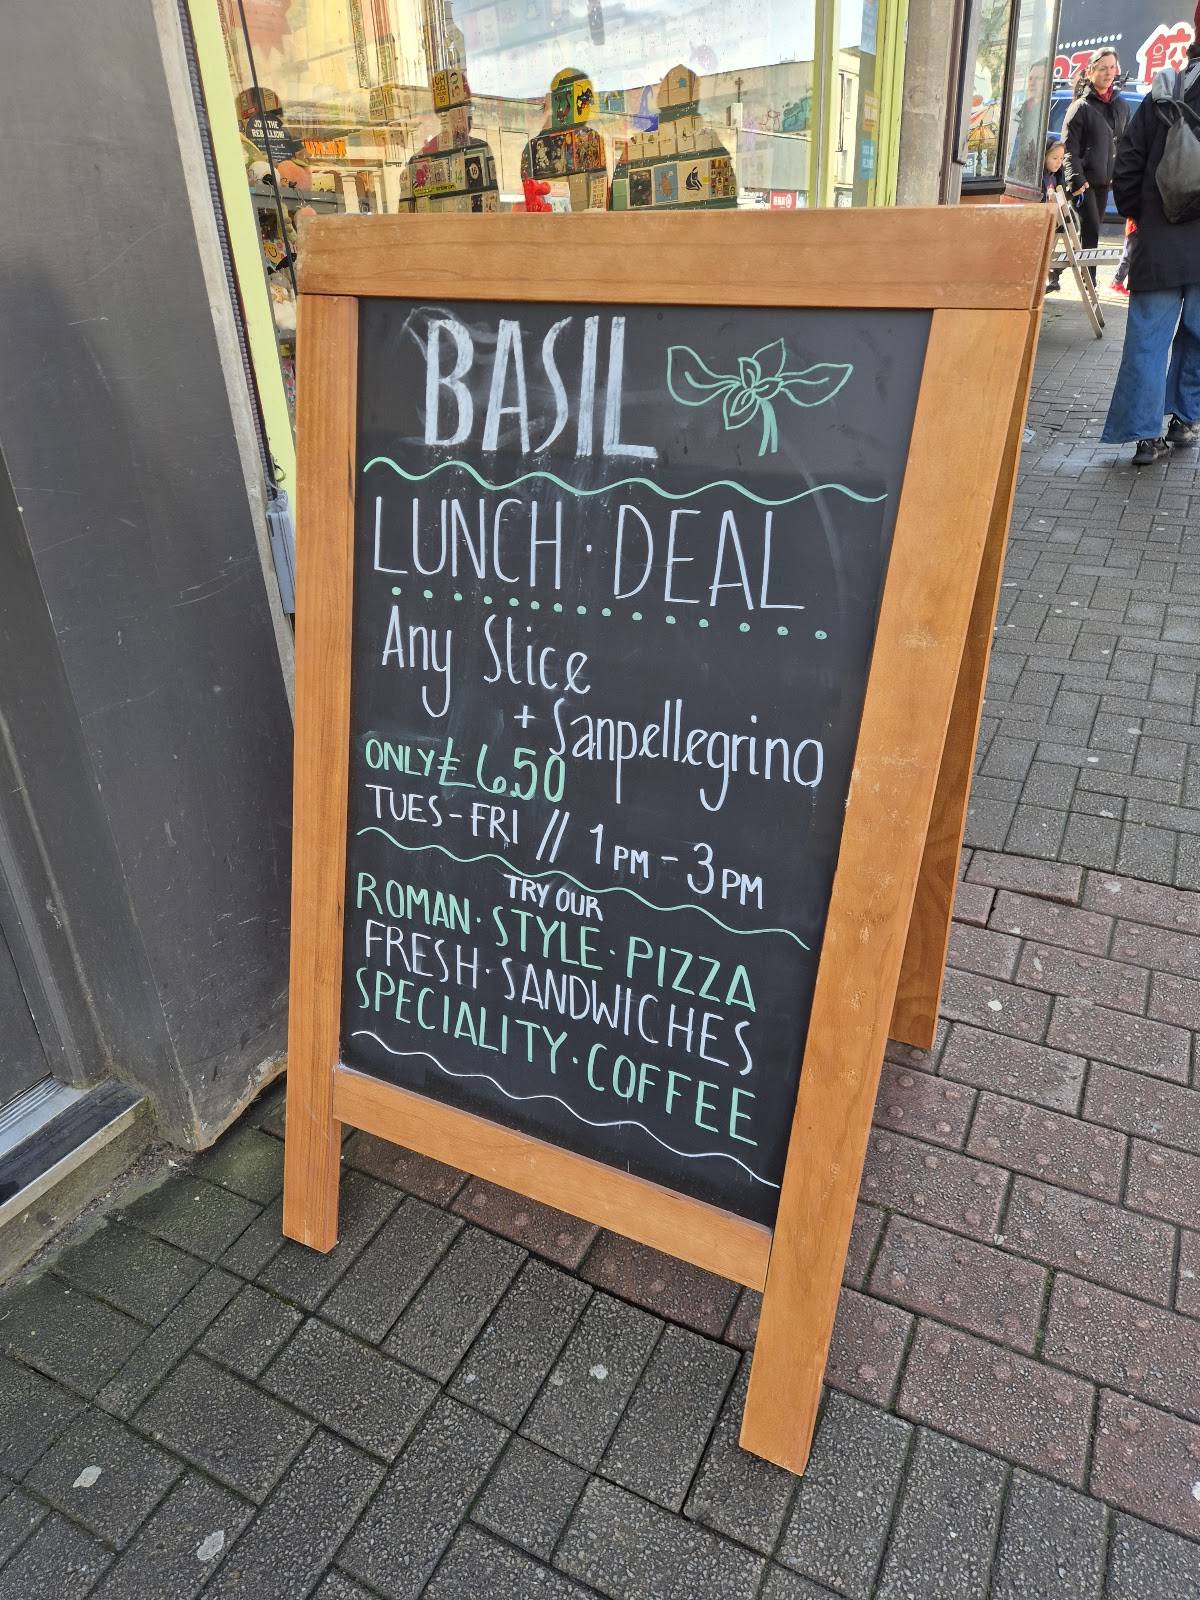 JOIN THE
REBELLION!
BASIL
LUNCH · DEAL
Any Slice
+ Sanpellegrino
ONLY £6.50
TUES - FRI // 1PM - 3PM
TRY OUR
ROMAN · STYLE · PIZZA
FRESH · SANDWICHES
SPECIALITY · COFFEE